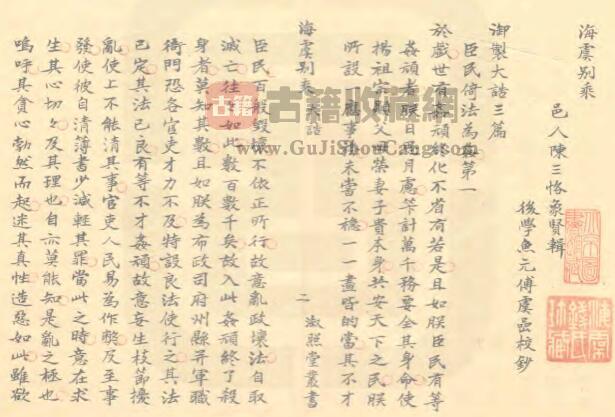 海虞別乘
邑人陳三恪象賢輯
後學魚元傅虞嵒校鈔
御製大誥三篇
臣民倚法為姦第一
於戲世有姦頑終化不省有若是且如朕臣民有等
姦頑者朕日思月慮筭計萬千務要全其身命使
揚祖宗顯父母榮妻子貴本身共安天下之民朕
所設一應事務未嘗不穩一一盡皆的當其不才
海虞別乘 大誥
二
淑照堂叢書
臣民百般毀壞不依正所行故意亂政壞法自取
滅亡往往如此數百數千矣故入此姦頑終了殺
身者莫知其數且如朕為布政司府州縣并軍職
衙門恐各官吏才力不及特設良法使行之其法
已定其法已良有等不才姦頑故意妄生枝節擾
亂使上不能清其事官吏人民易為作弊及至事
發使彼自清薄書少減輕其罪當此之時意在求
生其心切々及其理也自亦莫能知是亂之極也
嗚呼其貪心勃然而起迷其真性造惡如此雖欲
古籍收藏網
www.GuJiShouCang.com
古籍